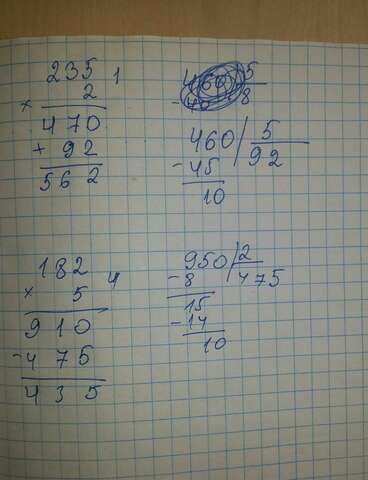 235 1
× 2
470
+ 92
562
460 5
- 45 92
10
182 4
× 5
910
- 475
435
950 2
- 8 475
15
- 14
10